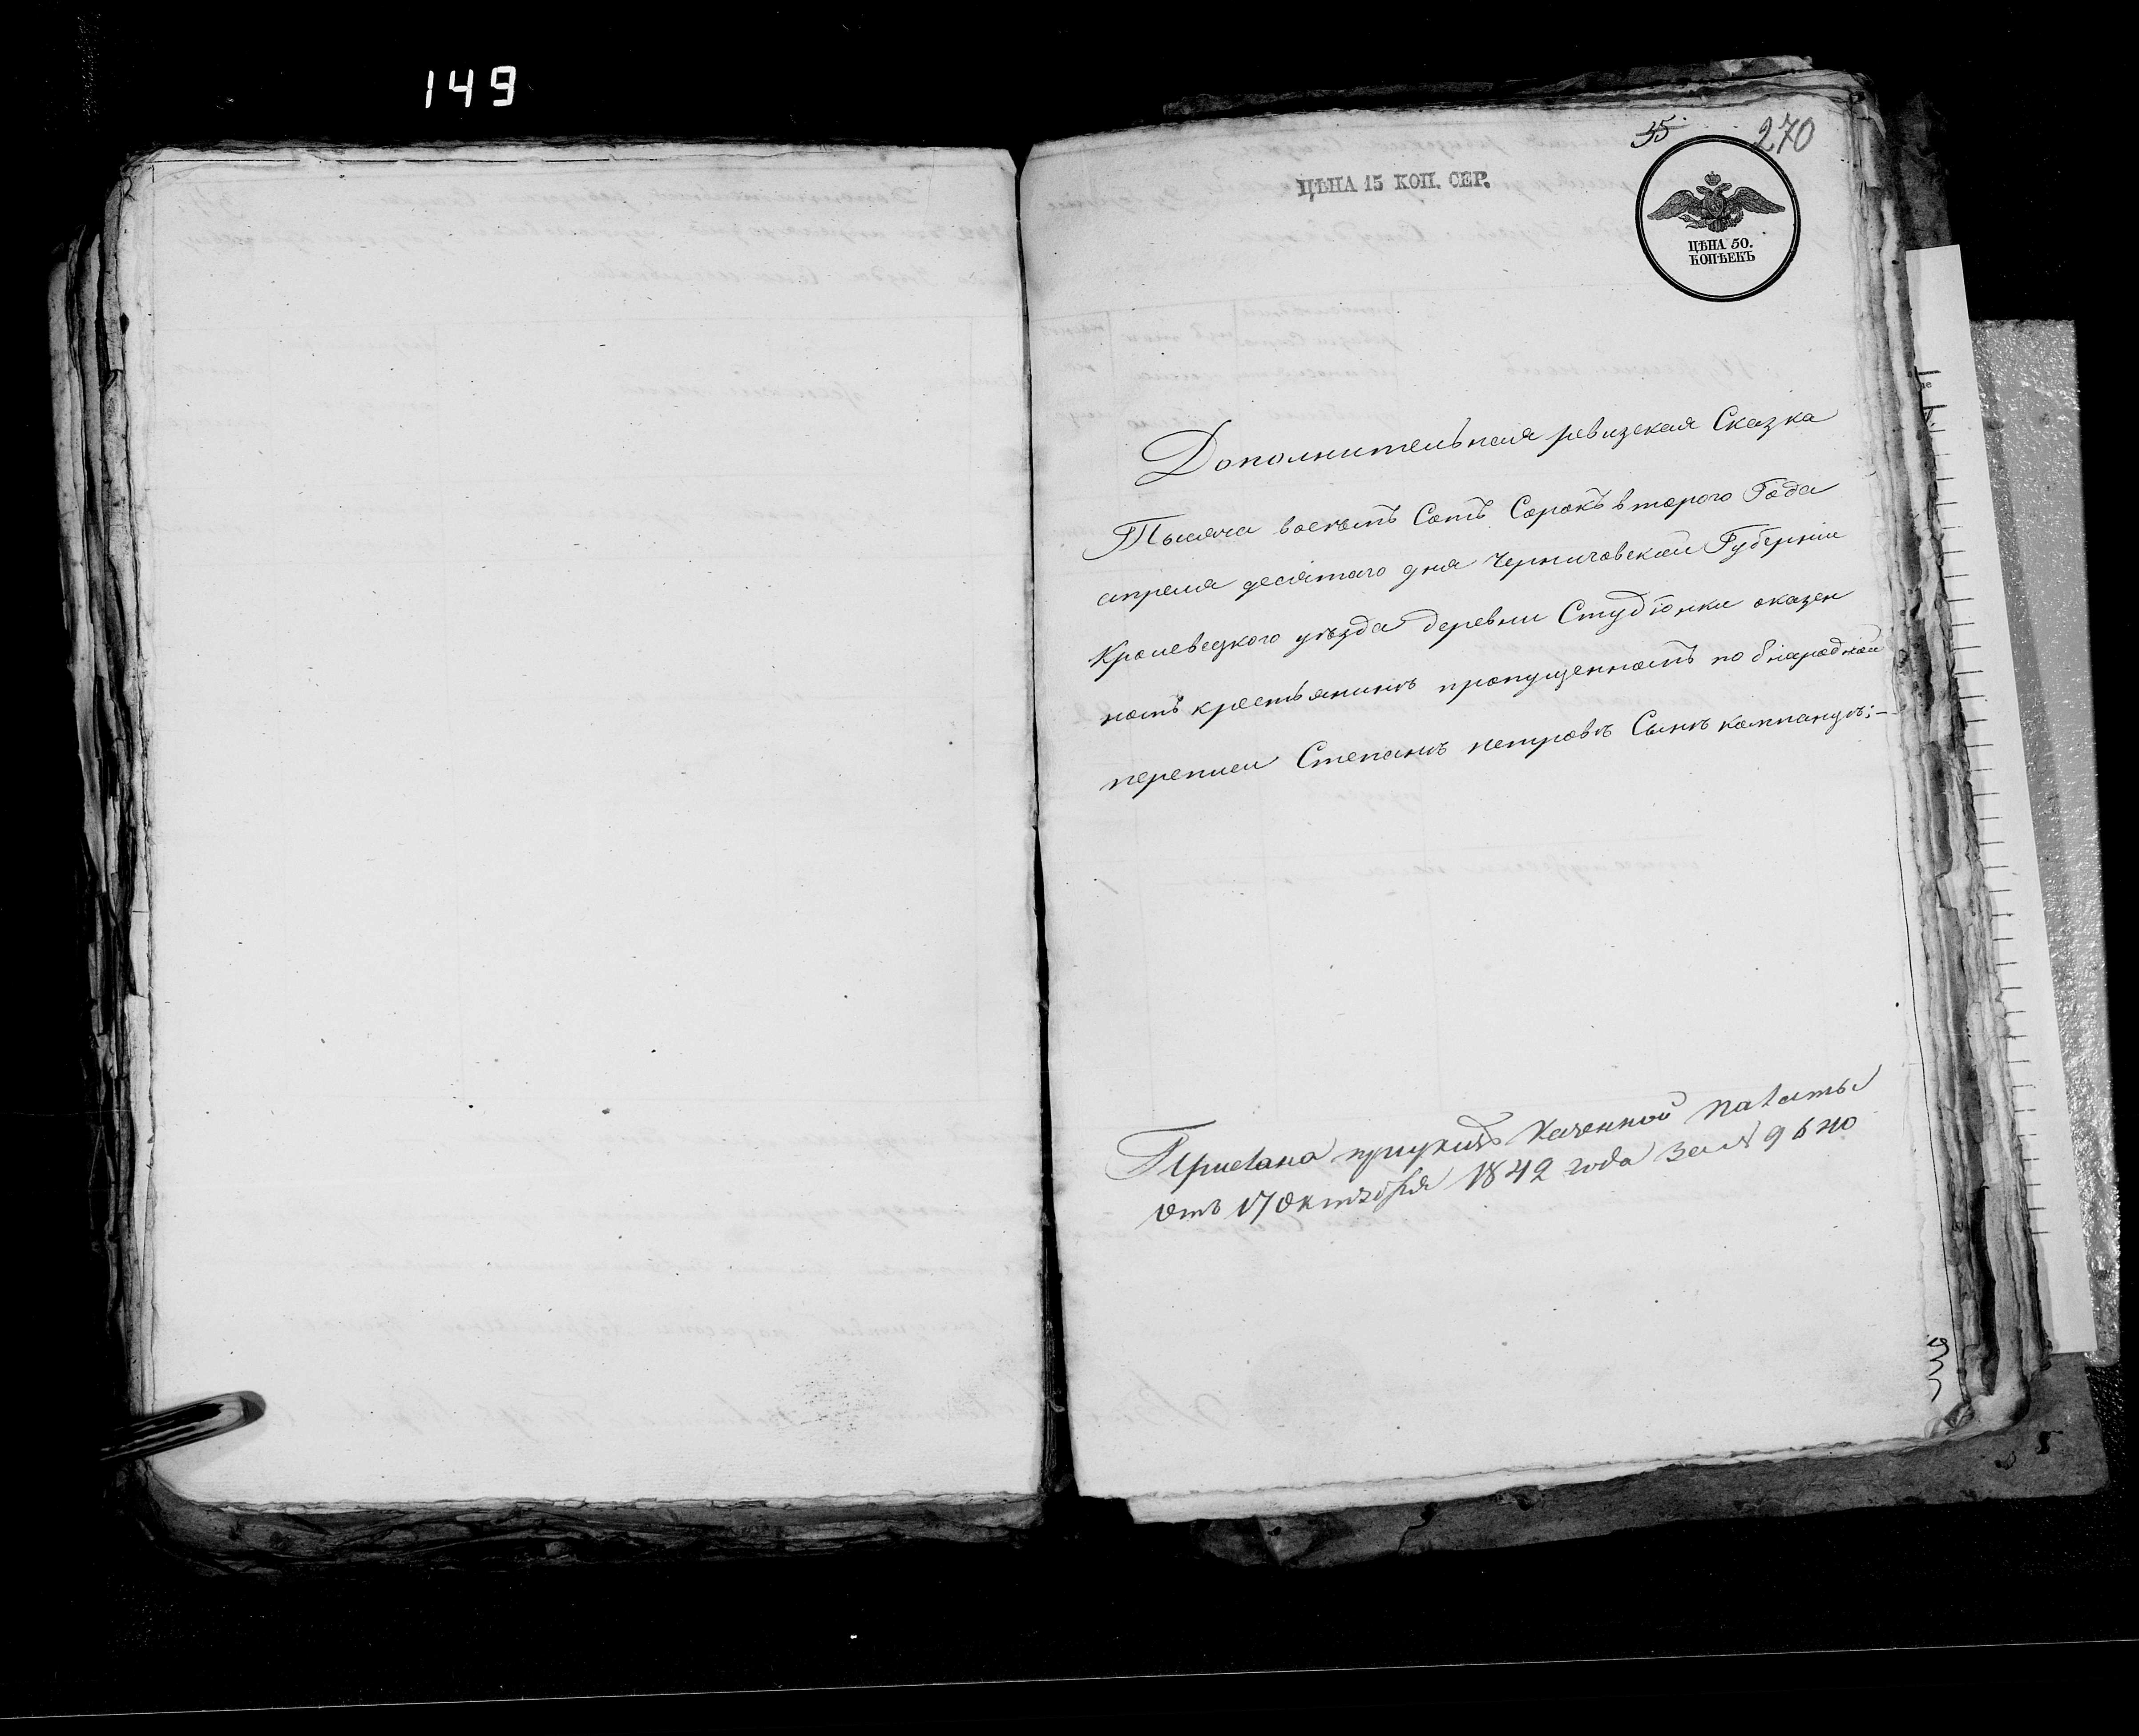 149
35
270
ЦѢНА 15 КОП. СЕР.
ЦѢНА 50.
КОПѢЕКЪ
Дополнительная ревизская Сказка
Тысяча восемь Сотъ Сорокъ второго Года
апреля десятаго дня Черниговской Губерніи
Кролевецкого уѣзда деревни Студіонки оказен
номъ крестьянинѣ пропущенномъ по 8 народной
переписи Степанъ петровъ Сынъ
Прислана приуказѣ Казенной палаты
Отъ 17 Октября 1842 года За №